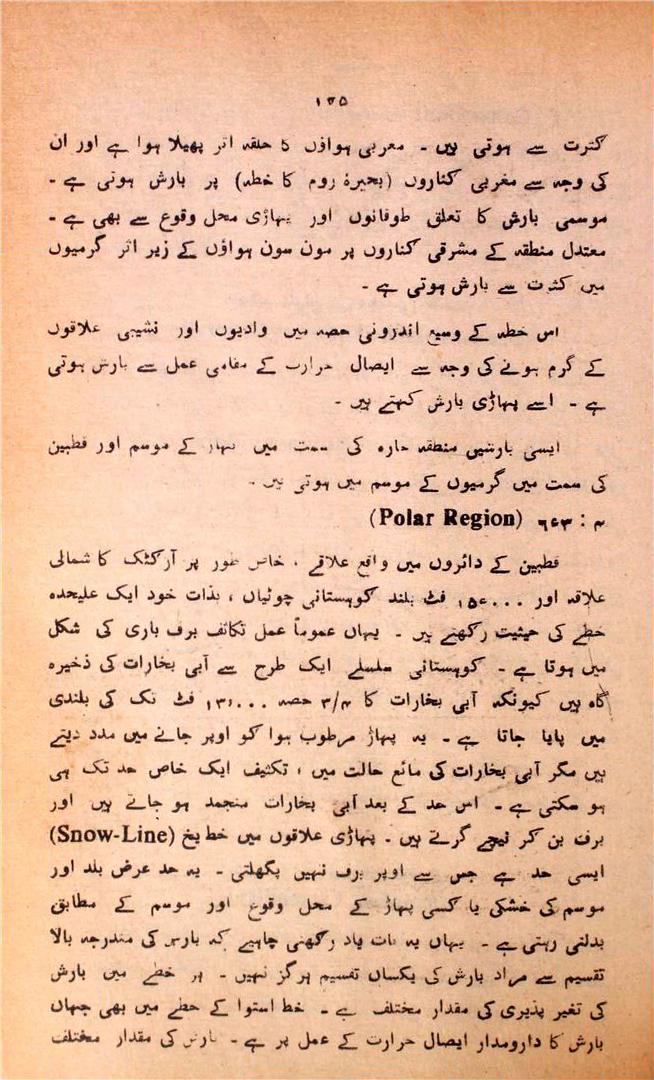 ۱۳۵
کثرت سے ہوتی ہیں ۔ مغربی ہواؤں کا حلقہ اثر پھیلا ہوا ہے اور ان
کی وجہ سے مغربی کناروں (بحیرۂ روم کا خطہ) پر بارش ہوتی ہے ۔
موسمی بارش کا تعلق طوفانوں اور پہاڑی محل وقوع سے بھی ہے ۔
معتدل منطقہ کے مشرقی کناروں پر مون سون ہواؤں کے زیر اثر گرمیوں
میں کثرت سے بارش ہوتی ہے ۔
اس خطہ کے وسیع اندرونی حصہ میں وادیوں اور نشیبی علاقوں
کے گرم ہونے کی وجہ سے ایصال حرارت کے مقامی عمل سے بارش ہوتی
ہے ۔ اسے پہاڑی بارش کہتے ہیں ۔
ایسی بارشیں منطقہ حارہ کی سمت میں بہار کے موسم اور قطبین
کی سمت میں گرمیوں کے موسم میں ہوتی ہیں ۔
۴ : ۶۶۳ (Polar Region)
قطبین کے دائروں میں واقع علاقے ، خاص طور پر آرکٹک کا شمالی
علاقہ اور ۱۵،۰۰۰ فٹ بلند کوہستانی چوٹیاں ، بذات خود ایک علیحدہ
خطے کی حیثیت رکھتے ہیں ۔ یہاں عموماً عمل تکاثف برف باری کی شکل
میں ہوتا ہے ۔ کوہستانی سلسلے ایک طرح سے آبی بخارات کی ذخیرہ
گاہ ہیں کیونکہ آبی بخارات کا ۳/۴ حصہ ۱۳،۰۰۰ فٹ تک کی بلندی
میں پایا جاتا ہے ۔ یہ پہاڑ مرطوب ہوا کو اوپر جانے میں مدد دیتے
ہیں مگر آبی بخارات کی مائع حالت میں ، تکثیف ایک خاص حد تک ہی
ہو سکتی ہے ۔ اس حد کے بعد آبی بخارات منجمد ہو جاتے ہیں اور
برف بن کر نیچے گرتے ہیں ۔ پہاڑی علاقوں میں خط یخ (Snow-Line)
ایسی حد ہے جس سے اوپر برف نہیں پگھلتی ۔ یہ حد عرض بلد اور
موسم کی خشکی یا کسی پہاڑ کے محل وقوع اور موسم کے مطابق
بدلتی رہتی ہے ۔ یہاں یہ بات یاد رکھنی چاہیے کہ بارش کی مندرجہ بالا
تقسیم سے مراد بارش کی یکساں تقسیم ہرگز نہیں ۔ ہر خطے میں بارش
کی تغیر پذیری کی مقدار مختلف ہے ۔ خط استوا کے خطے میں بھی جہاں
بارش کا دارومدار ایصال حرارت کے عمل پر ہے ۔ بارش کی مقدار مختلف